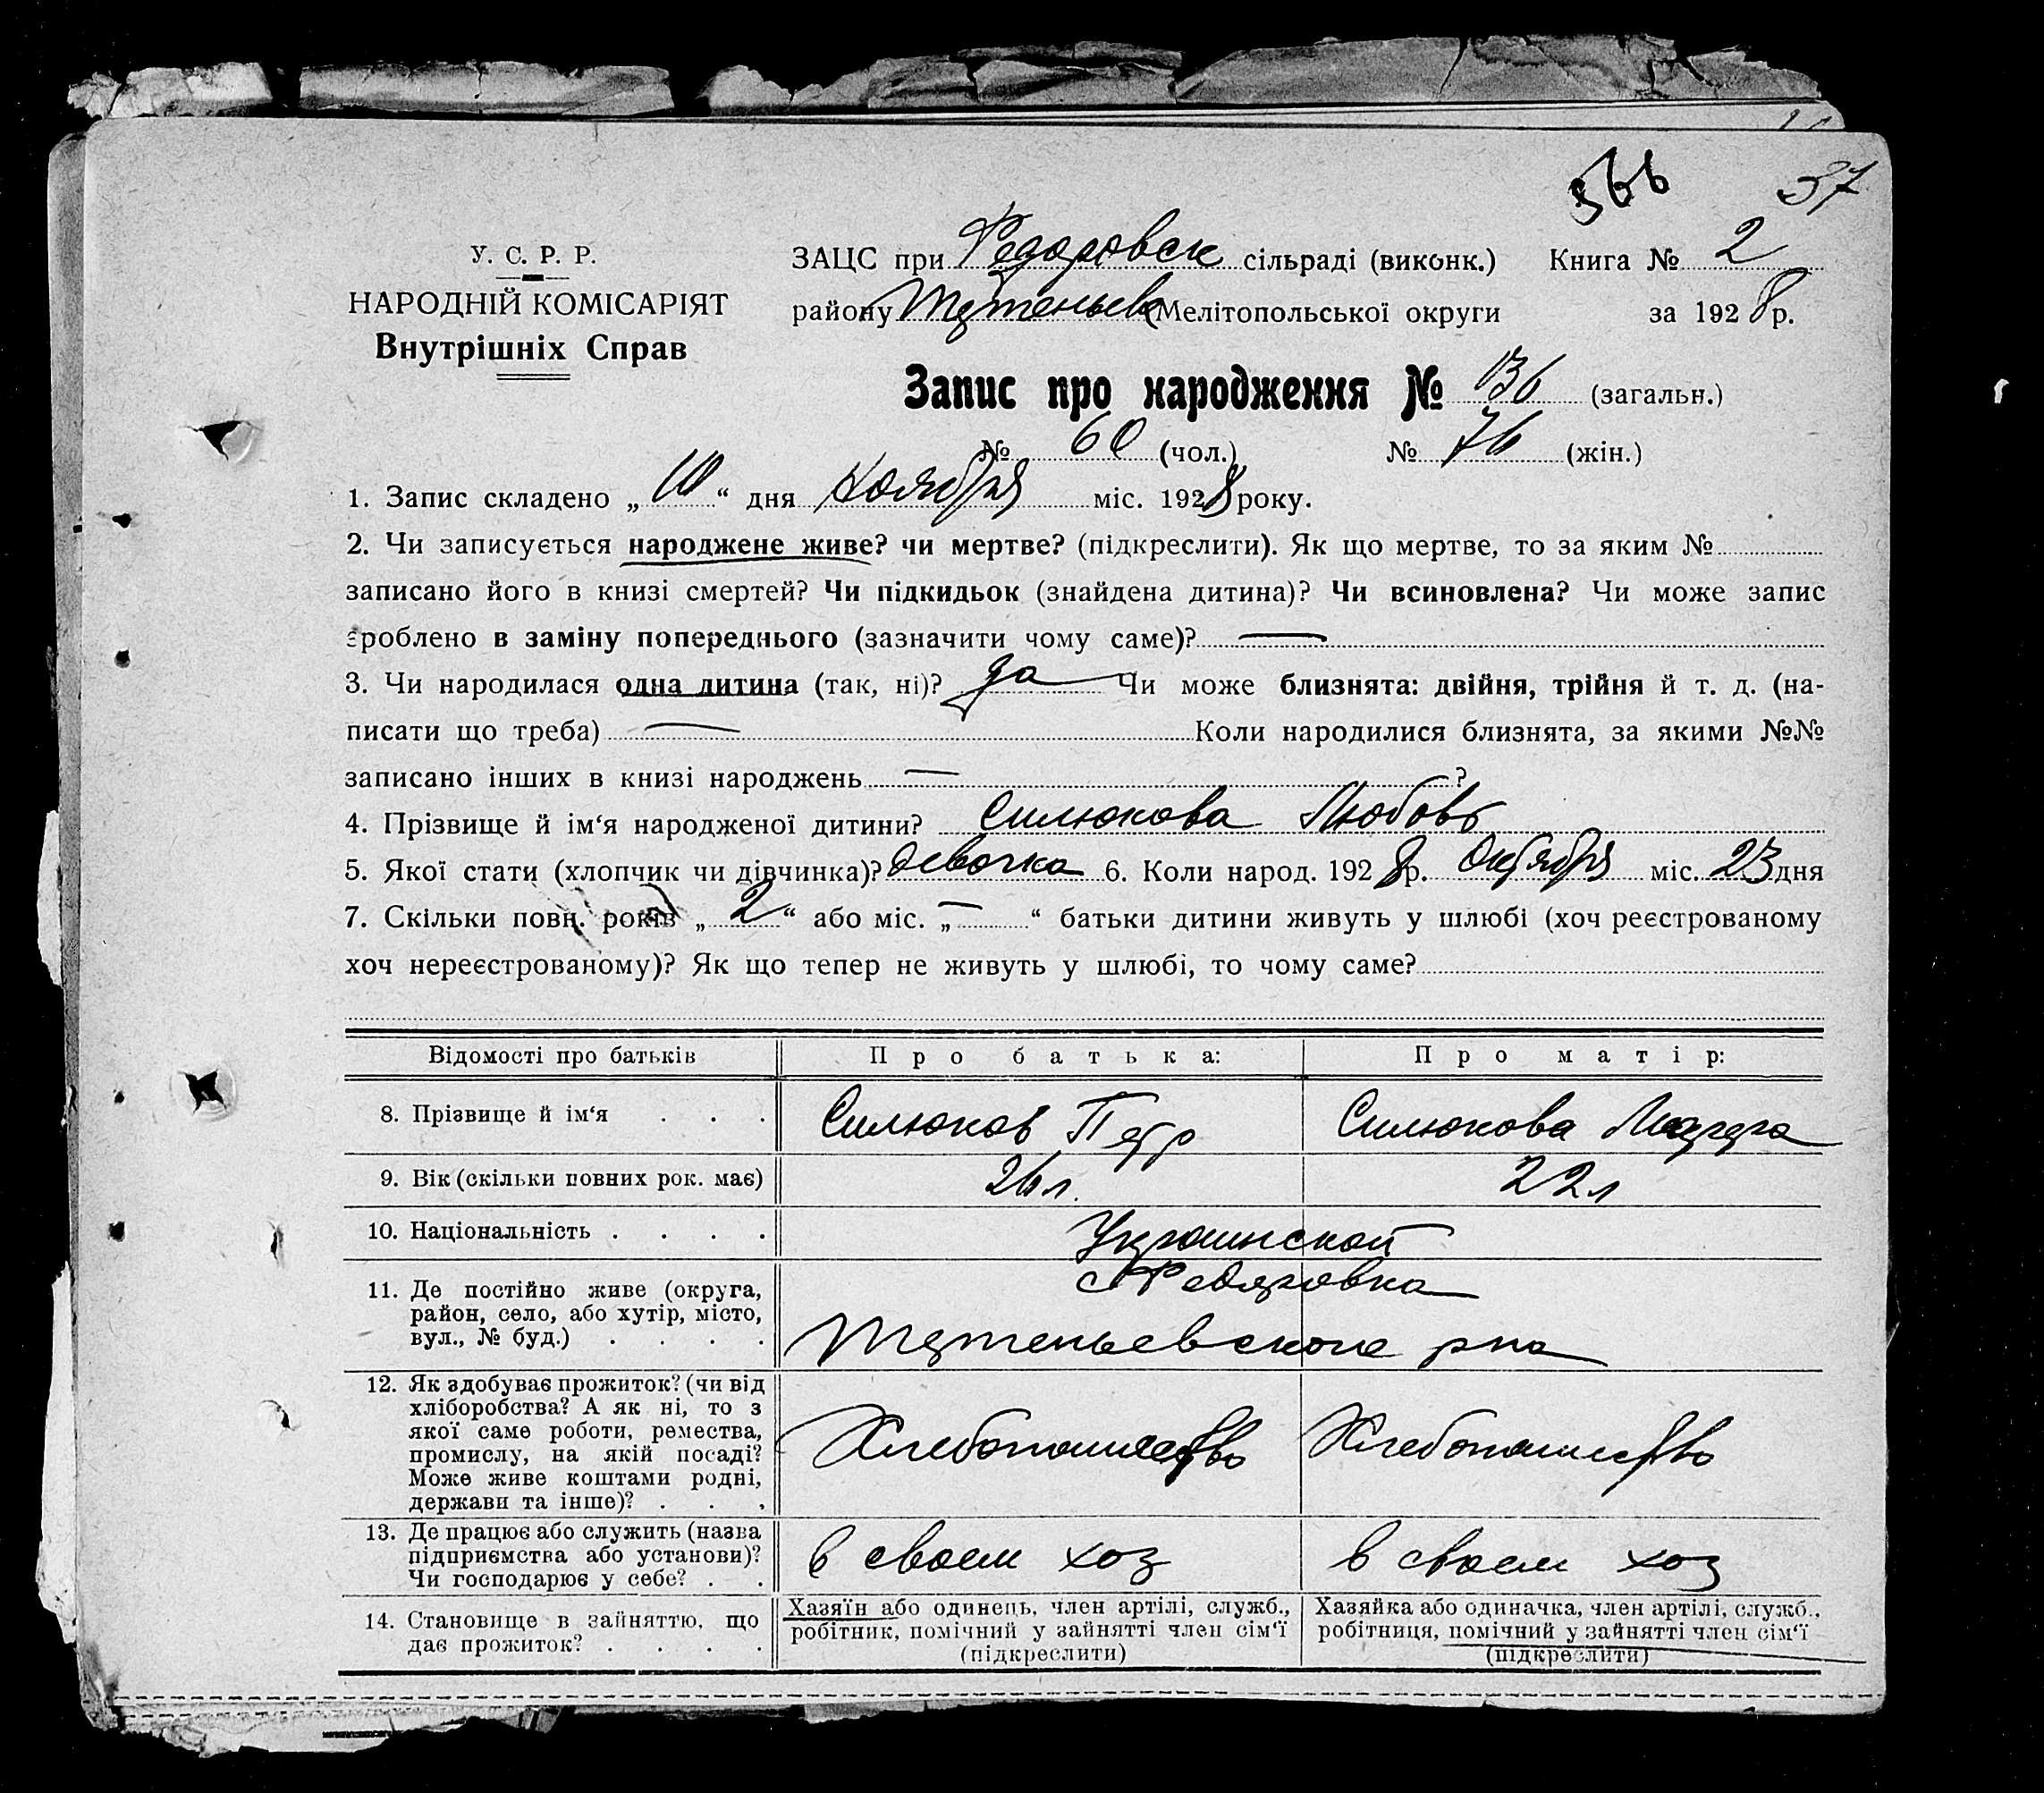 566 37
У. С. Р. Р.
НАРОДНІЙ КОМІСАРІЯТ
Внутрішніх Справ
ЗАЦС при Федоровск сільраді (виконк.) Книга № 2
району Мелітопольської округи за 1928 р.
Запис про народження № 136 (загальн.)
№ 60 (чол.) № 76 (жін.)
1. Запис складено „10“ дня Ноября міс. 1928 року.
2. Чи записується народжене живе? чи мертве? (підкреслити). Як що мертве, то за яким №
записано його в книзі смертей? Чи підкидьок (знайдена дитина)? Чи всиновлена? Чи може запис
зроблено в заміну попереднього (зазначити чому саме)? —
3. Чи народилася одна дитина (так, ні)? да Чи може близнята: двійня, трійня й т. д. (на-
писати що треба) — Коли народилися близнята, за якими №№
записано інших в книзі народжень — ?
4. Прізвище й ім‘я народженої дитини? Силюкова Любовь
5. Якої стати (хлопчик чи дівчинка)? девочка 6. Коли народ. 1928 р. Октября міс. 23 дня
7. Скільки повн. років „2“ або міс. „—“ батьки дитини живуть у шлюбі (хоч реєстрованому
хоч нереєстрованому)? Як що тепер не живуть у шлюбі, то чому саме?
Відомості про батьків Про батька: Про матір:
8. Прізвище й ім‘я . . . Силюков Петр Силюкова
9. Вік (скільки повних рок. має) 26 л. 22 л
10. Національність . . . . Украинской
11. Де постійно живе (округа,
район, село, або хутір, місто,
вул., № буд.) . . . .
с Федоровка
рна
12. Як здобуває прожиток? (чи від
хліборобства? А як ні, то з
якої саме роботи, ремества,
промислу, на якій посаді?
Може живе коштами родні,
держави та інше)? . . .
Хлебопашество Хлебопашество
13. Де працює або служить (назва
підприємства або установи)?
Чи господарює у себе? . .
в своем хоз в своем хоз
14. Становище в зайняттю, що
дає прожиток? . . . .
Хазяїн або одинець, член артілі, служб.,
робітник, помічний у зайнятті член сім‘ї
(підкреслити)
Хазяйка або одиначка, член артілі, служб.,
робітниця, помічний у зайнятті член сім‘ї
(підкреслити)